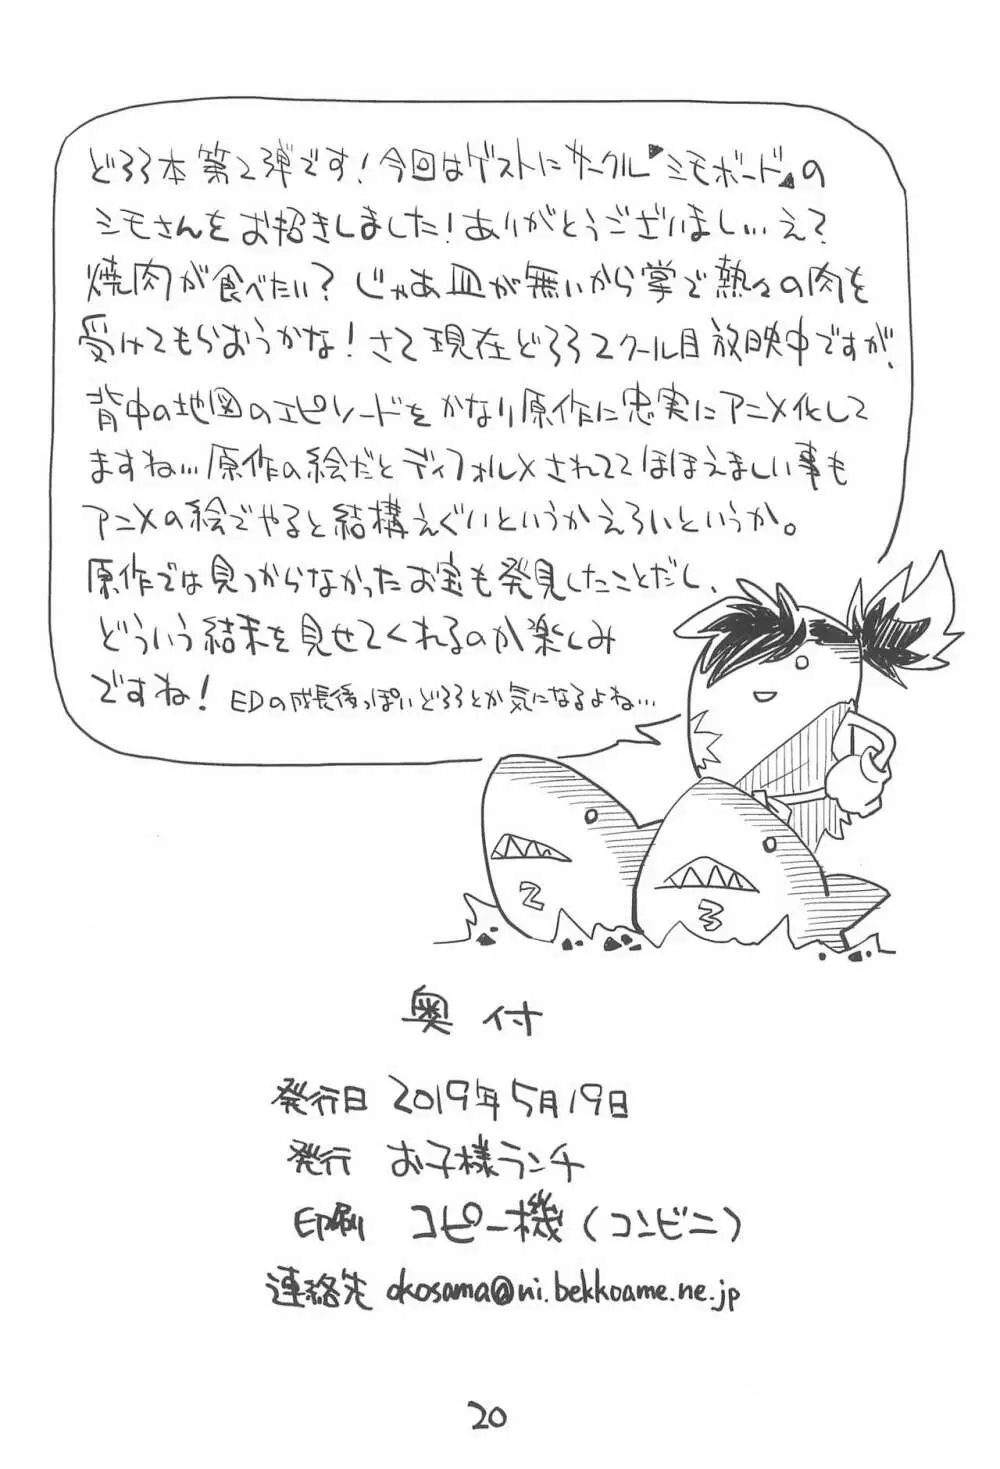 どろろ本第2弾です！今回はゲストにサークル『シモボード』の
シモさんをお招きしました！ありがとうございまし…え？
焼肉が食べたい？じゃあ皿が無いから掌で熱々の肉を
受けてもらおうかな！さて現在どろろ2クール目放映中ですが、
背中の地図のエピソードをかなり原作に忠実にアニメ化して
ますね…原作の絵だとディフォルメされててほほえましい事も
アニメの絵でやると結構えぐいというかえろいというか。
原作では見つからなかったお宝も発見したことだし、
どういう結末を見せてくれるのか楽しみ
ですね！EDの成長後っぽいどろろとか気になるよね…
2
3
奥付
発行日 2019年5月19日
発行 お子様ランチ
印刷 コピー機（コンビニ）
連絡先 okosama@ni.bekkoame.ne.jp
20